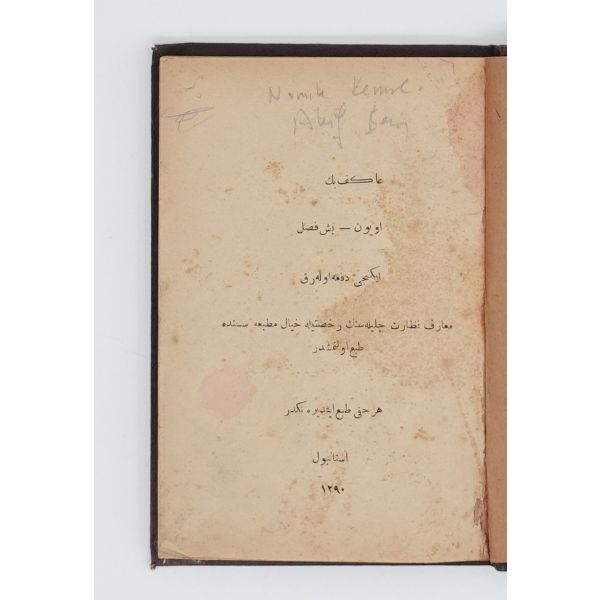 Namık Kemal.
Akif Bey
عاكف بك
اويون — بش فصل
ايكنجى دفعه اوله‌رق
معارف نظارت جليله‌سنك رخصتيله خيال مطبعه سنده
طبع اولنمشدر
هر حقى طبع ايتديره نكدر
استانبول
١٢٩٠